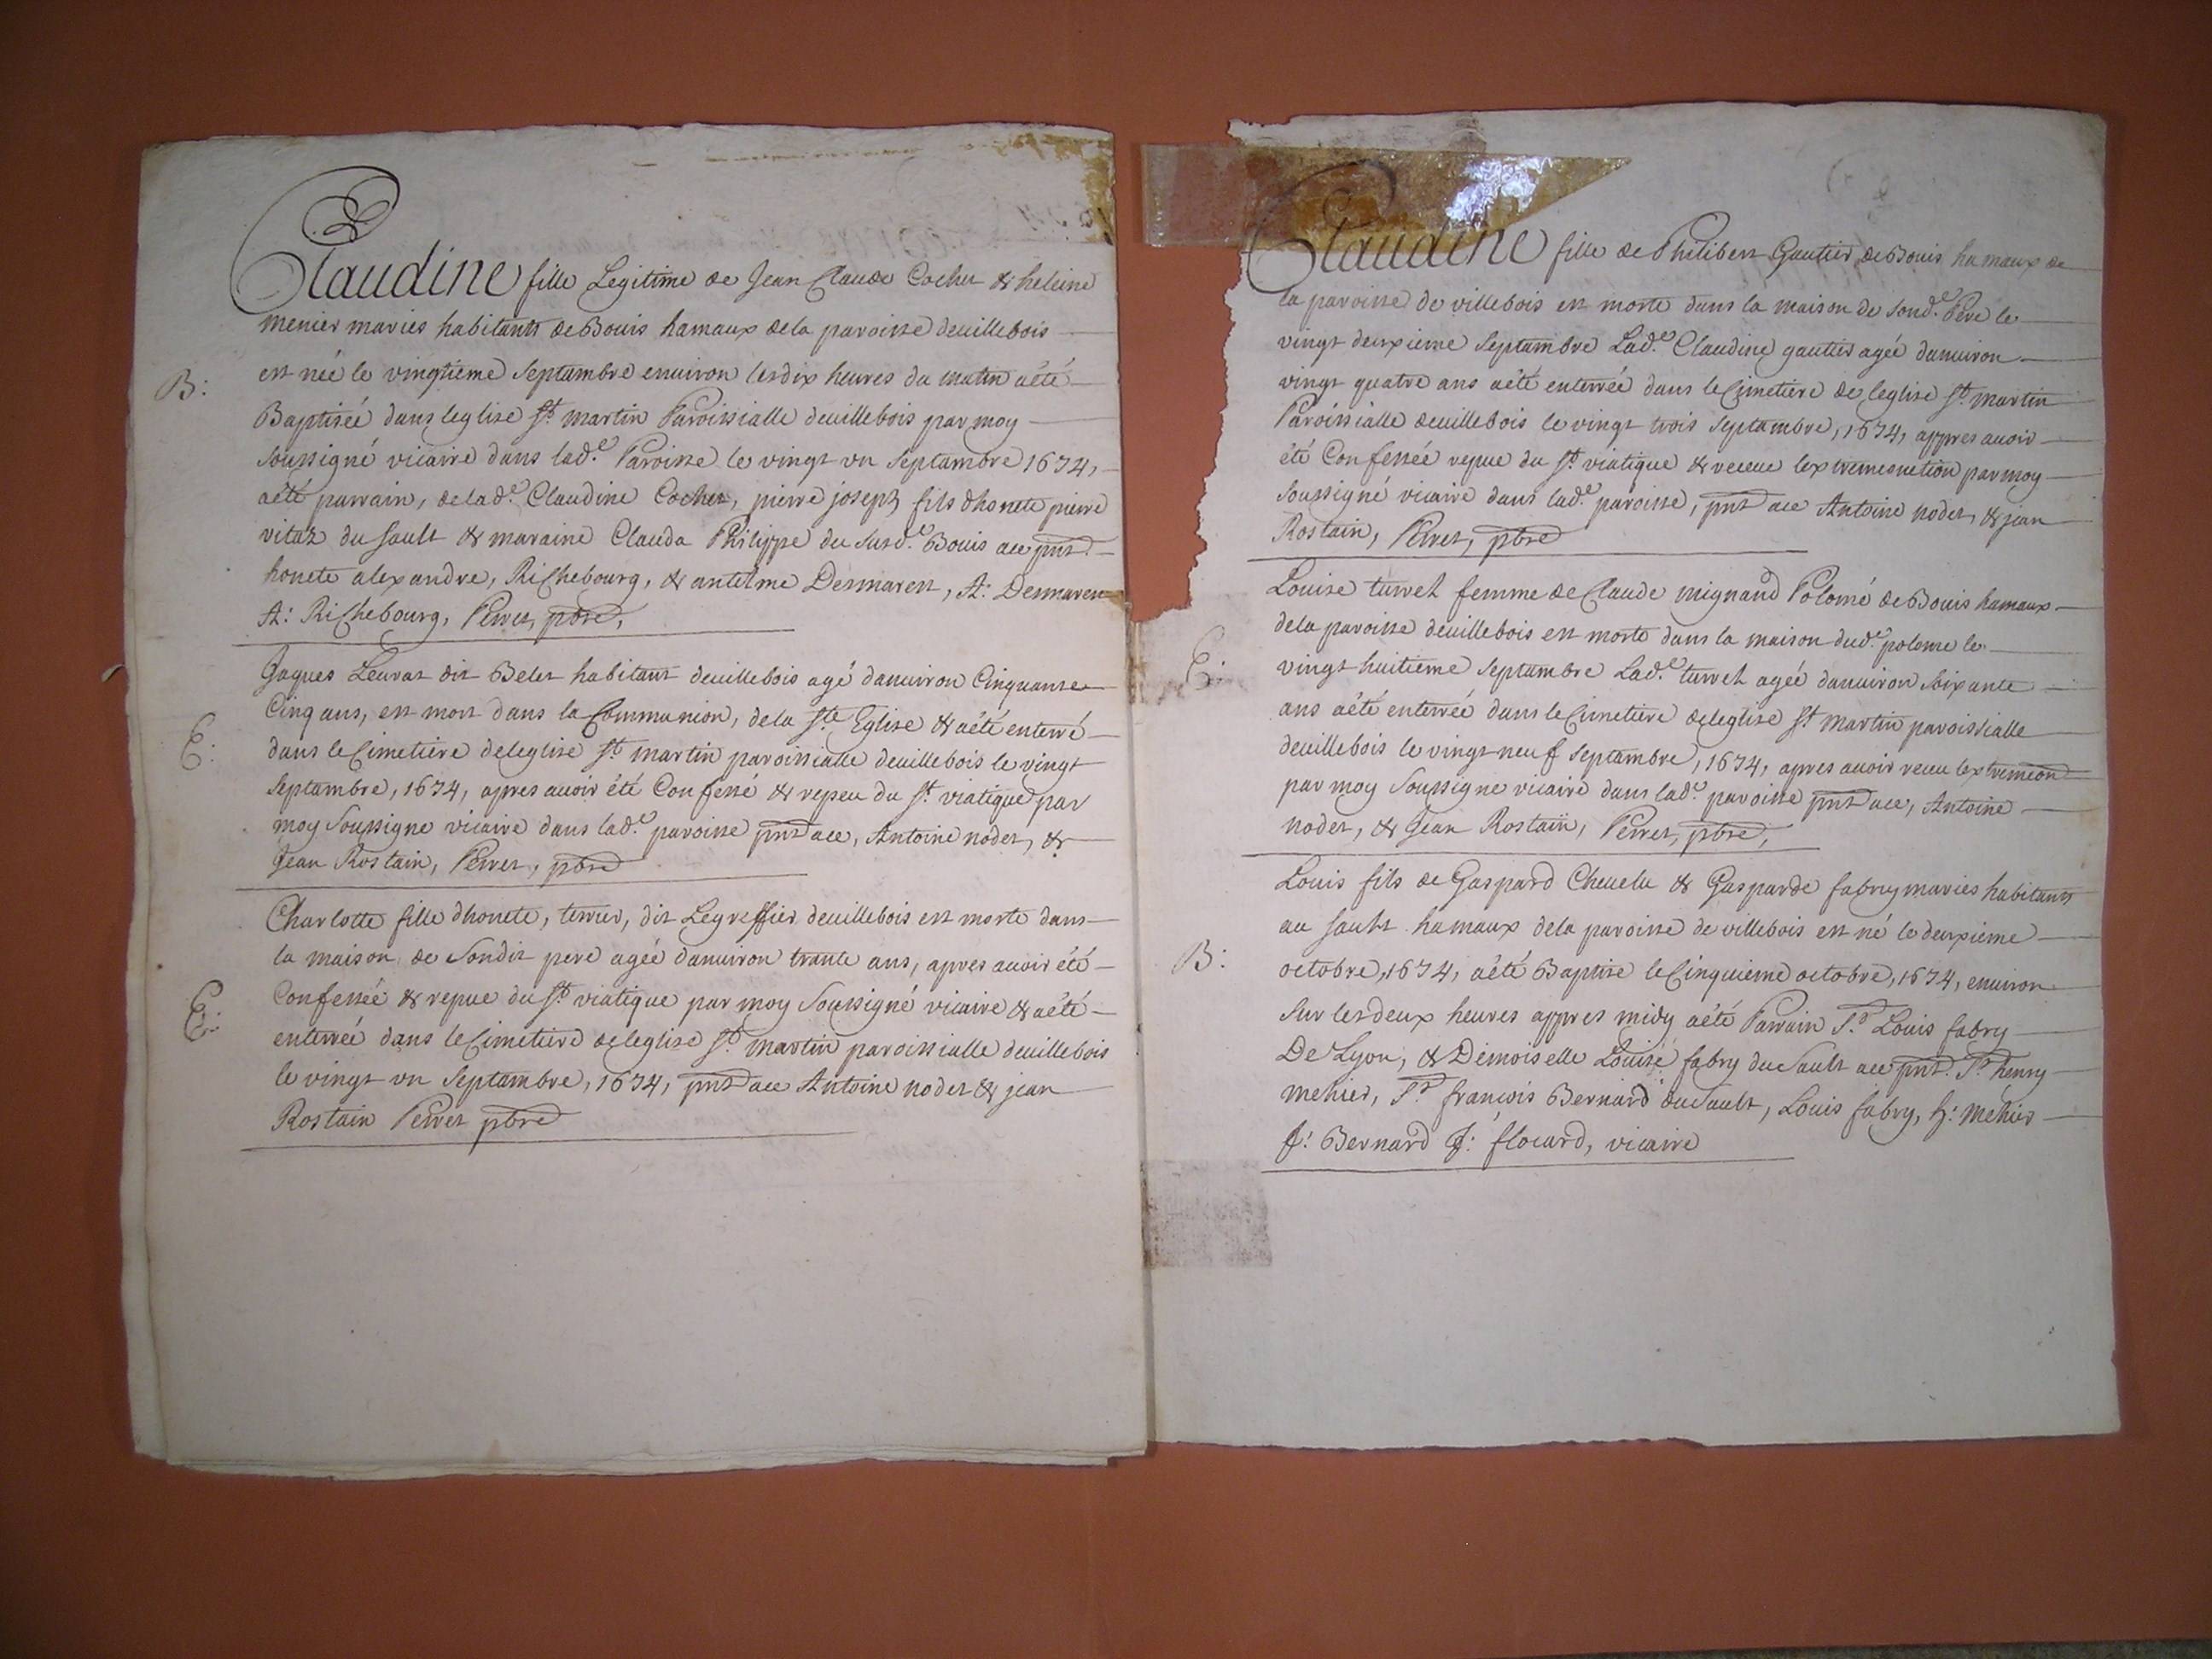 Claudine fille Legitime de Jean Claude Cochet & heleine
menier maries habitants de Bouis hamaux de la paroisse deuillebois
B:
est néé le vingtième Septambre enuiron les dix heures du matin aété
Baptiséé dans leglise St. martin Paroissialle deuillebois par moy
soussigné vicaire dans lad.e Paroisse le vingt vn Septambre 1674,
aété parrain, de lad.e Claudine Cochet, pierre joseph fils dhonete pierre
vitaz du sault & maraine Clauda Philippe du susd.e Bouis ace pnt
honete alexandre, Richebourg, & antelme Desmarest, A: Desmarest
A: Richebourg, Perret, pbre,
Jaques Leurat dit Belet habitant deuillebois agé danuiron Cinquante
E:
Cinq ans, est mort dans la Communion, de la Ste Eglise & aété enterré
dans le Cimetiere deleglise St. martin paroissialle deuillebois le vingt
septambre, 1674, apres auoir été Confessé & repeu du St. viatique par
moy Soussigne vicaire dans lad.e paroisse pnt ace, Antoine nodet, &
Jean Rostain, Perret, pbre
Charlotte fille dhonete, terrier, dit Legreffier deuillebois est morte dans
la maison de Sondit pere agéé danuiron trante ans, apres auoir été
E:
Confesséé & repue du St. viatique par moy Soussigné vicaire & aété
enterréé dans le Cimetiere deleglise St. martin paroissialle deuillebois
le vingt vn Septambre, 1674, pnt ace Antoine nodet & jean
Rostain Perret pbre
Claudine fille de Philibert Gautier de Bouis hamaux de
la paroisse de villebois est morte dans la maison de sond.e Pere le
vingt deuxieme Septambre Lad.e Claudine gautier agéé danuiron
vingt quatre ans aété enterréé dans le Cimetiere de leglise St. martin
Paroissialle deuillebois le vingt trois Septambre, 1674, appres auoir
été Confesséé repue du St. viatique & receue lextremeonction par moy
soussigné vicaire dans lad.e paroisse, pnt ace Antoine nodet, & jean
Rostain, Perret, pbre
Louise turret femme de Claude mignand Polomé de Bouis hamaux
dela paroisse deuillebois est morte dans la maison dud.e polome le
E:
vingt huitieme septambre Lad.e turret agéé danuiron soixante
ans aété enterréé dans le Cimetiere deleglise St. martin paroissialle
deuillebois le vingt neuf septambre, 1674, apres auoir receu
par moy Soussigne vicaire dans lad.e paroisse pnt ace, Antoine
nodet, & Jean Rostain, Perret, pbre,
Louis fils de Gaspard Cheuelu & Gasparde fabry maries habitants
au sault hamaux dela paroisse de villebois est né le deuxieme
B:
octobre, 1674, aété Baptise le Cinquieme octobre, 1674, enuiron
Sur les deux heures appres midy aété Parrain Sr. Louis fabry
De Lyon, & Demoiselle Louise fabry du Sault ace pnt. Sr henry
mehier, Sr francois Bernard du Sault, Louis fabry, h: mehier
f: Bernard f: flocard, vicaire